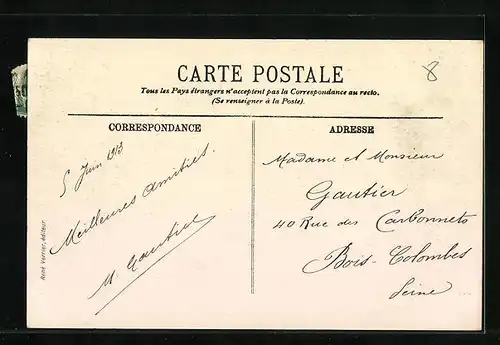 8
CARTE POSTALE
Tous les Pays étrangers n'acceptent pas la Correspondance au recto.
(Se renseigner à la Poste).
CORRESPONDANCE
5 Juin 1913
Meilleures amitiés.
M. Gautier
René Verrier, éditeur
ADRESSE
Madame et Monsieur
Gautier
40 Rue des Carbonnets
Bois-Colombes
Seine